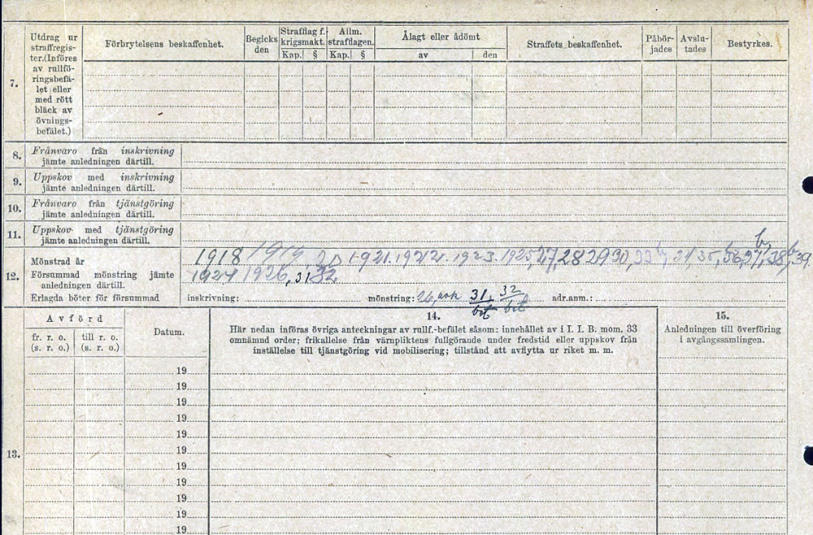 7.
Utdrag ur
straffregis-
ter.(Införes
av rullfö-
ringsbefä-
let eller
med rött
bläck av
övnings-
befälet.)
Förbrytelsens beskaffenhet.
Begicks
den
Strafflag f.
krigsmakt.
Kap. §
Allm.
strafflagen.
Kap. §
Ålagt eller ådömt
av den
Straffets beskaffenhet.
Påbör-
jades
Avslu-
tades
Bestyrkes.
8. Frånvaro från inskrivning
jämte anledningen därtill.
9. Uppskov med inskrivning
jämte anledningen därtill.
10. Frånvaro från tjänstgöring
jämte anledningen därtill.
11. Uppskov med tjänstgöring
jämte anledningen därtill.
12.
Mönstrad år 1918 1919, 20 1921. 1922. 1923. 1925, 27, 28 29 30, 33, 34, 35, 36, 37, 38, 39.
Försummad mönstring jämte 1924 1926, 31 32
anledningen därtill.
Erlagda böter för försummad inskrivning: mönstring: 26, och 31, 32 adr.anm.:
13.
Avförd
fr. r. o.
(s. r. o.)
till r. o.
(s. r. o.)
Datum.
14.
Här nedan införas övriga anteckningar av rullf.-befälet såsom: innehållet av i I. I. B. mom. 33
omnämnd order; frikallelse från värnpliktens fullgörande under fredstid eller uppskov från
inställelse till tjänstgöring vid mobilisering; tillstånd att avflytta ur riket m. m.
15.
Anledningen till överföring
i avgångssamlingen.
19
19
19
19
19
19
19
19
19
19
19